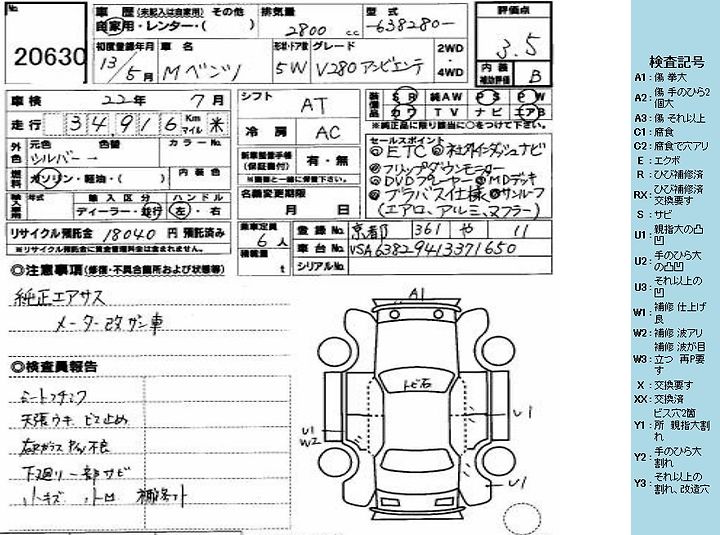 No.
20630
車歴 (未記入は自家用) その他
自家用・レンター・( )
排気量
2800 cc
型式
-638280-
評価点
3.5
内装
補助評価
B
初度登録年月
13/5月
車名
Mベンツ
形状・ドア数
5W
グレード
V280アンビエンテ
2WD
・
4WD
車検 22年 7月
走行 34916 Km マイル 米
外色
元色 色替 カラーNo.
シルバー→
燃料
ガソリン・軽油・( )
輸入車
年式 輸入区分 ハンドル
ディーラー・並行 左・右
リサイクル預託金 18040 円 預託済み
※リサイクル預託金に資金管理料金は含まれません。
シフト AT
冷房 AC
新車整備手帳
(保証書付)
有・無
※書類と一緒に保管して下さい。
名義変更期限
月 日
乗車定員
6人
積載量
t
装備品
SR 純AW PS PW
カワ TV ナビ エアB
※純正品に限り該当に○をつけて下さい。
セールスポイント
◎ETC ◎社外インダッシュナビ
◎フリップダウンモニター
◎DVDプレーヤー ◎MDデッキ
◎ブラバス仕様 ◎サンルーフ
(エアロ、アルミ、マフラー)
登録No. 京都 361 や 11
車台No. VSA63829413371650
シリアルNo.
◎注意事項(修復・不具合箇所および状態等)
純正エアサス
メーター改ザン車
◎検査員報告
シートスナコゲ
天張ウキ ビス止め
下廻り一部サビ
小キズ 小凹
A1
トビ石
U1
U1
W2
U1
検査記号
A1：傷 拳大
A2：傷 手のひら2個大
A3：傷 それ以上
C1：腐食
C2：腐食で穴アリ
E：エクボ
R：ひび補修済
RX：ひび補修済 交換要す
S：サビ
U1：親指大の凸凹
U2：手のひら大の凸凹
U3：それ以上の凹
W1：補修 仕上げ良
W2：補修 波アリ
W3：補修 波が目立つ 再P要す
X：交換要す
XX：交換済
Y1：ビス穴2箇所 親指大割れ
Y2：手のひら大割れ
Y3：それ以上の割れ、改造穴